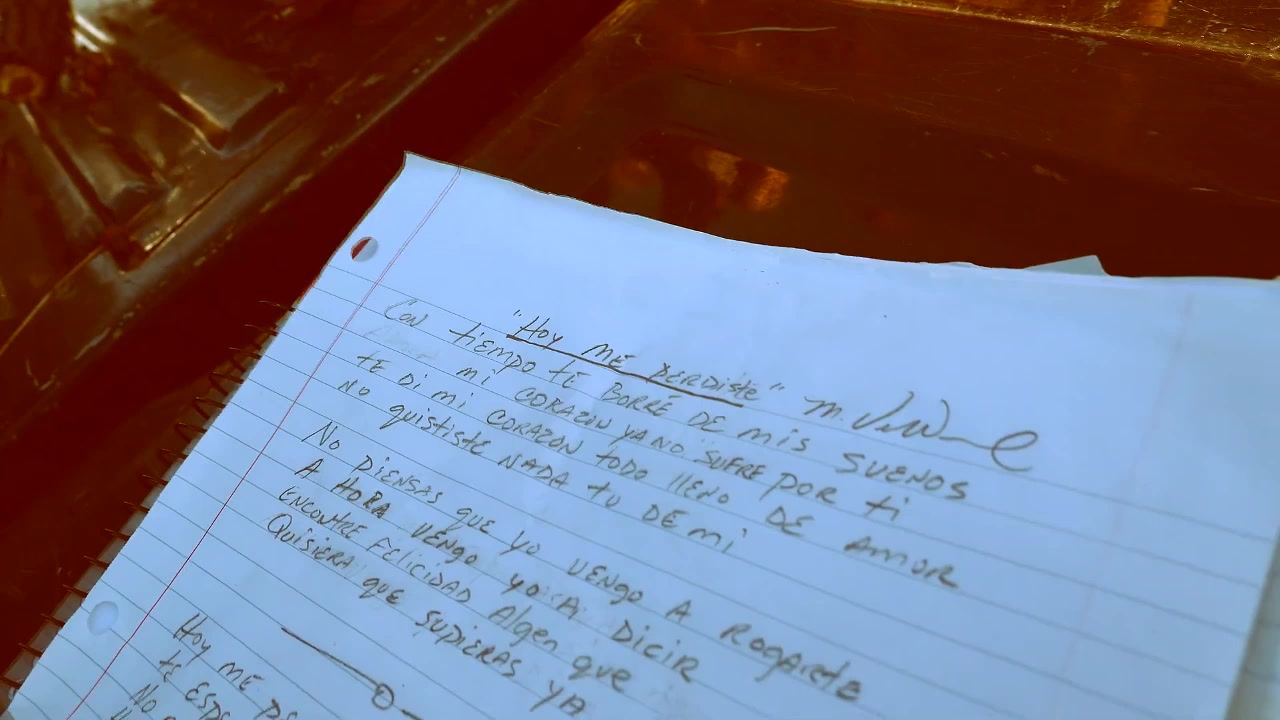 "HOY ME PERDISTE"
CON tiEMPO tE BORRÉ DE MIS SUENOS
Mi CORAZON YA NO SUFRE POR ti
tE Di Mi CORAZON tODO llENO DE AMOR
NO quististe NADA tU DE Mi
NO PIENSAS quE YO VENGO A ROGARte
A HORA VENGO YO A DICIR
ENCONTRE FELICIDAD Algen quE
QuisiERA quE SUPIERAS YA
HOY ME
tE
NO